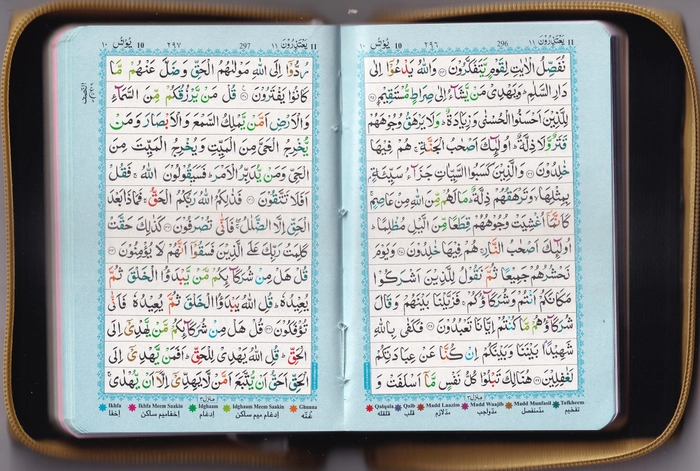 11 يَعْتَذِرُوْنَ ١١
296 ٢٩٦
10 يُوْنُسَ ١٠
نُفَصِّلُ الْاٰيٰتِ لِقَوْمٍ يَّتَفَكَّرُوْنَ ۝ وَاللّٰهُ يَدْعُوْۤا اِلٰى
دَارِ السَّلٰمِ ؕ وَيَهْدِىْ مَنْ يَّشَآءُ اِلٰى صِرَاطٍ مُّسْتَقِيْمٍ ۝
لِلَّذِيْنَ اَحْسَنُوا الْحُسْنٰى وَزِيَادَةٌ ؕ وَلَا يَرْهَقُ وُجُوْهَهُمْ
قَتَرٌ وَّلَا ذِلَّةٌ ؕ اُولٰٓئِكَ اَصْحٰبُ الْجَنَّةِ ۚ هُمْ فِيْهَا
خٰلِدُوْنَ ۝ وَالَّذِيْنَ كَسَبُوا السَّيِّاٰتِ جَزَآءُ سَيِّئَةٍۭ
بِمِثْلِهَا ۙ وَتَرْهَقُهُمْ ذِلَّةٌ ؕ مَا لَهُمْ مِّنَ اللّٰهِ مِنْ عَاصِمٍ ۚ
كَاَنَّمَاۤ اُغْشِيَتْ وُجُوْهُهُمْ قِطَعًا مِّنَ الَّيْلِ مُظْلِمًا ؕ
اُولٰٓئِكَ اَصْحٰبُ النَّارِ ۚ هُمْ فِيْهَا خٰلِدُوْنَ ۝ وَيَوْمَ
نَحْشُرُهُمْ جَمِيْعًا ثُمَّ نَقُوْلُ لِلَّذِيْنَ اَشْرَكُوْا
مَكَانَكُمْ اَنْتُمْ وَشُرَكَآؤُكُمْ ۚ فَزَيَّلْنَا بَيْنَهُمْ وَقَالَ
شُرَكَآؤُهُمْ مَّا كُنْتُمْ اِيَّانَا تَعْبُدُوْنَ ۝ فَكَفٰى بِاللّٰهِ
شَهِيْدًۢا بَيْنَنَا وَبَيْنَكُمْ اِنْ كُنَّا عَنْ عِبَادَتِكُمْ
لَغٰفِلِيْنَ ۝ هُنَالِكَ تَبْلُوْا كُلُّ نَفْسٍ مَّاۤ اَسْلَفَتْ وَ
منزل ٣
Qalqala Qalb Madd Laazim Madd Waajib Madd Munfasil Tafkheem
قلقله قلب مدّلازم مدّواجب مدّمنفصل تفخیم
11 يَعْتَذِرُوْنَ ١١
297 ٢٩٧
10 يُوْنُسَ ١٠
رُدُّوْۤا اِلَى اللّٰهِ مَوْلٰىهُمُ الْحَقِّ وَضَلَّ عَنْهُمْ مَّا
كَانُوْا يَفْتَرُوْنَ ۝ قُلْ مَنْ يَّرْزُقُكُمْ مِّنَ السَّمَآءِ
وَالْاَرْضِ اَمَّنْ يَّمْلِكُ السَّمْعَ وَالْاَبْصَارَ وَمَنْ
يُّخْرِجُ الْحَىَّ مِنَ الْمَيِّتِ وَيُخْرِجُ الْمَيِّتَ مِنَ
الْحَىِّ وَمَنْ يُّدَبِّرُ الْاَمْرَ ؕ فَسَيَقُوْلُوْنَ اللّٰهُ ۚ فَقُلْ
اَفَلَا تَتَّقُوْنَ ۝ فَذٰلِكُمُ اللّٰهُ رَبُّكُمُ الْحَقُّ ۚ فَمَاذَا بَعْدَ
الْحَقِّ اِلَّا الضَّلٰلُ ۖ فَاَنّٰى تُصْرَفُوْنَ ۝ كَذٰلِكَ حَقَّتْ
كَلِمَتُ رَبِّكَ عَلَى الَّذِيْنَ فَسَقُوْۤا اَنَّهُمْ لَا يُؤْمِنُوْنَ ۝
قُلْ هَلْ مِنْ شُرَكَآئِكُمْ مَّنْ يَّبْدَؤُا الْخَلْقَ ثُمَّ
يُعِيْدُهٗ ؕ قُلِ اللّٰهُ يَبْدَؤُا الْخَلْقَ ثُمَّ يُعِيْدُهٗ فَاَنّٰى
تُؤْفَكُوْنَ ۝ قُلْ هَلْ مِنْ شُرَكَآئِكُمْ مَّنْ يَّهْدِىْۤ اِلَى
الْحَقِّ ؕ قُلِ اللّٰهُ يَهْدِىْ لِلْحَقِّ ؕ اَفَمَنْ يَّهْدِىْۤ اِلَى
الْحَقِّ اَحَقُّ اَنْ يُّتَّبَعَ اَمَّنْ لَّا يَهِدِّىْۤ اِلَّاۤ اَنْ يُّهْدٰى ۚ
منزل ٣
Ikhfa Ikhfa Meem Saakin Idghaam Idghaam Meem Saakin Ghunna
اخفا اخفامیم ساکن ادغام ادغام میم ساکن غنّه